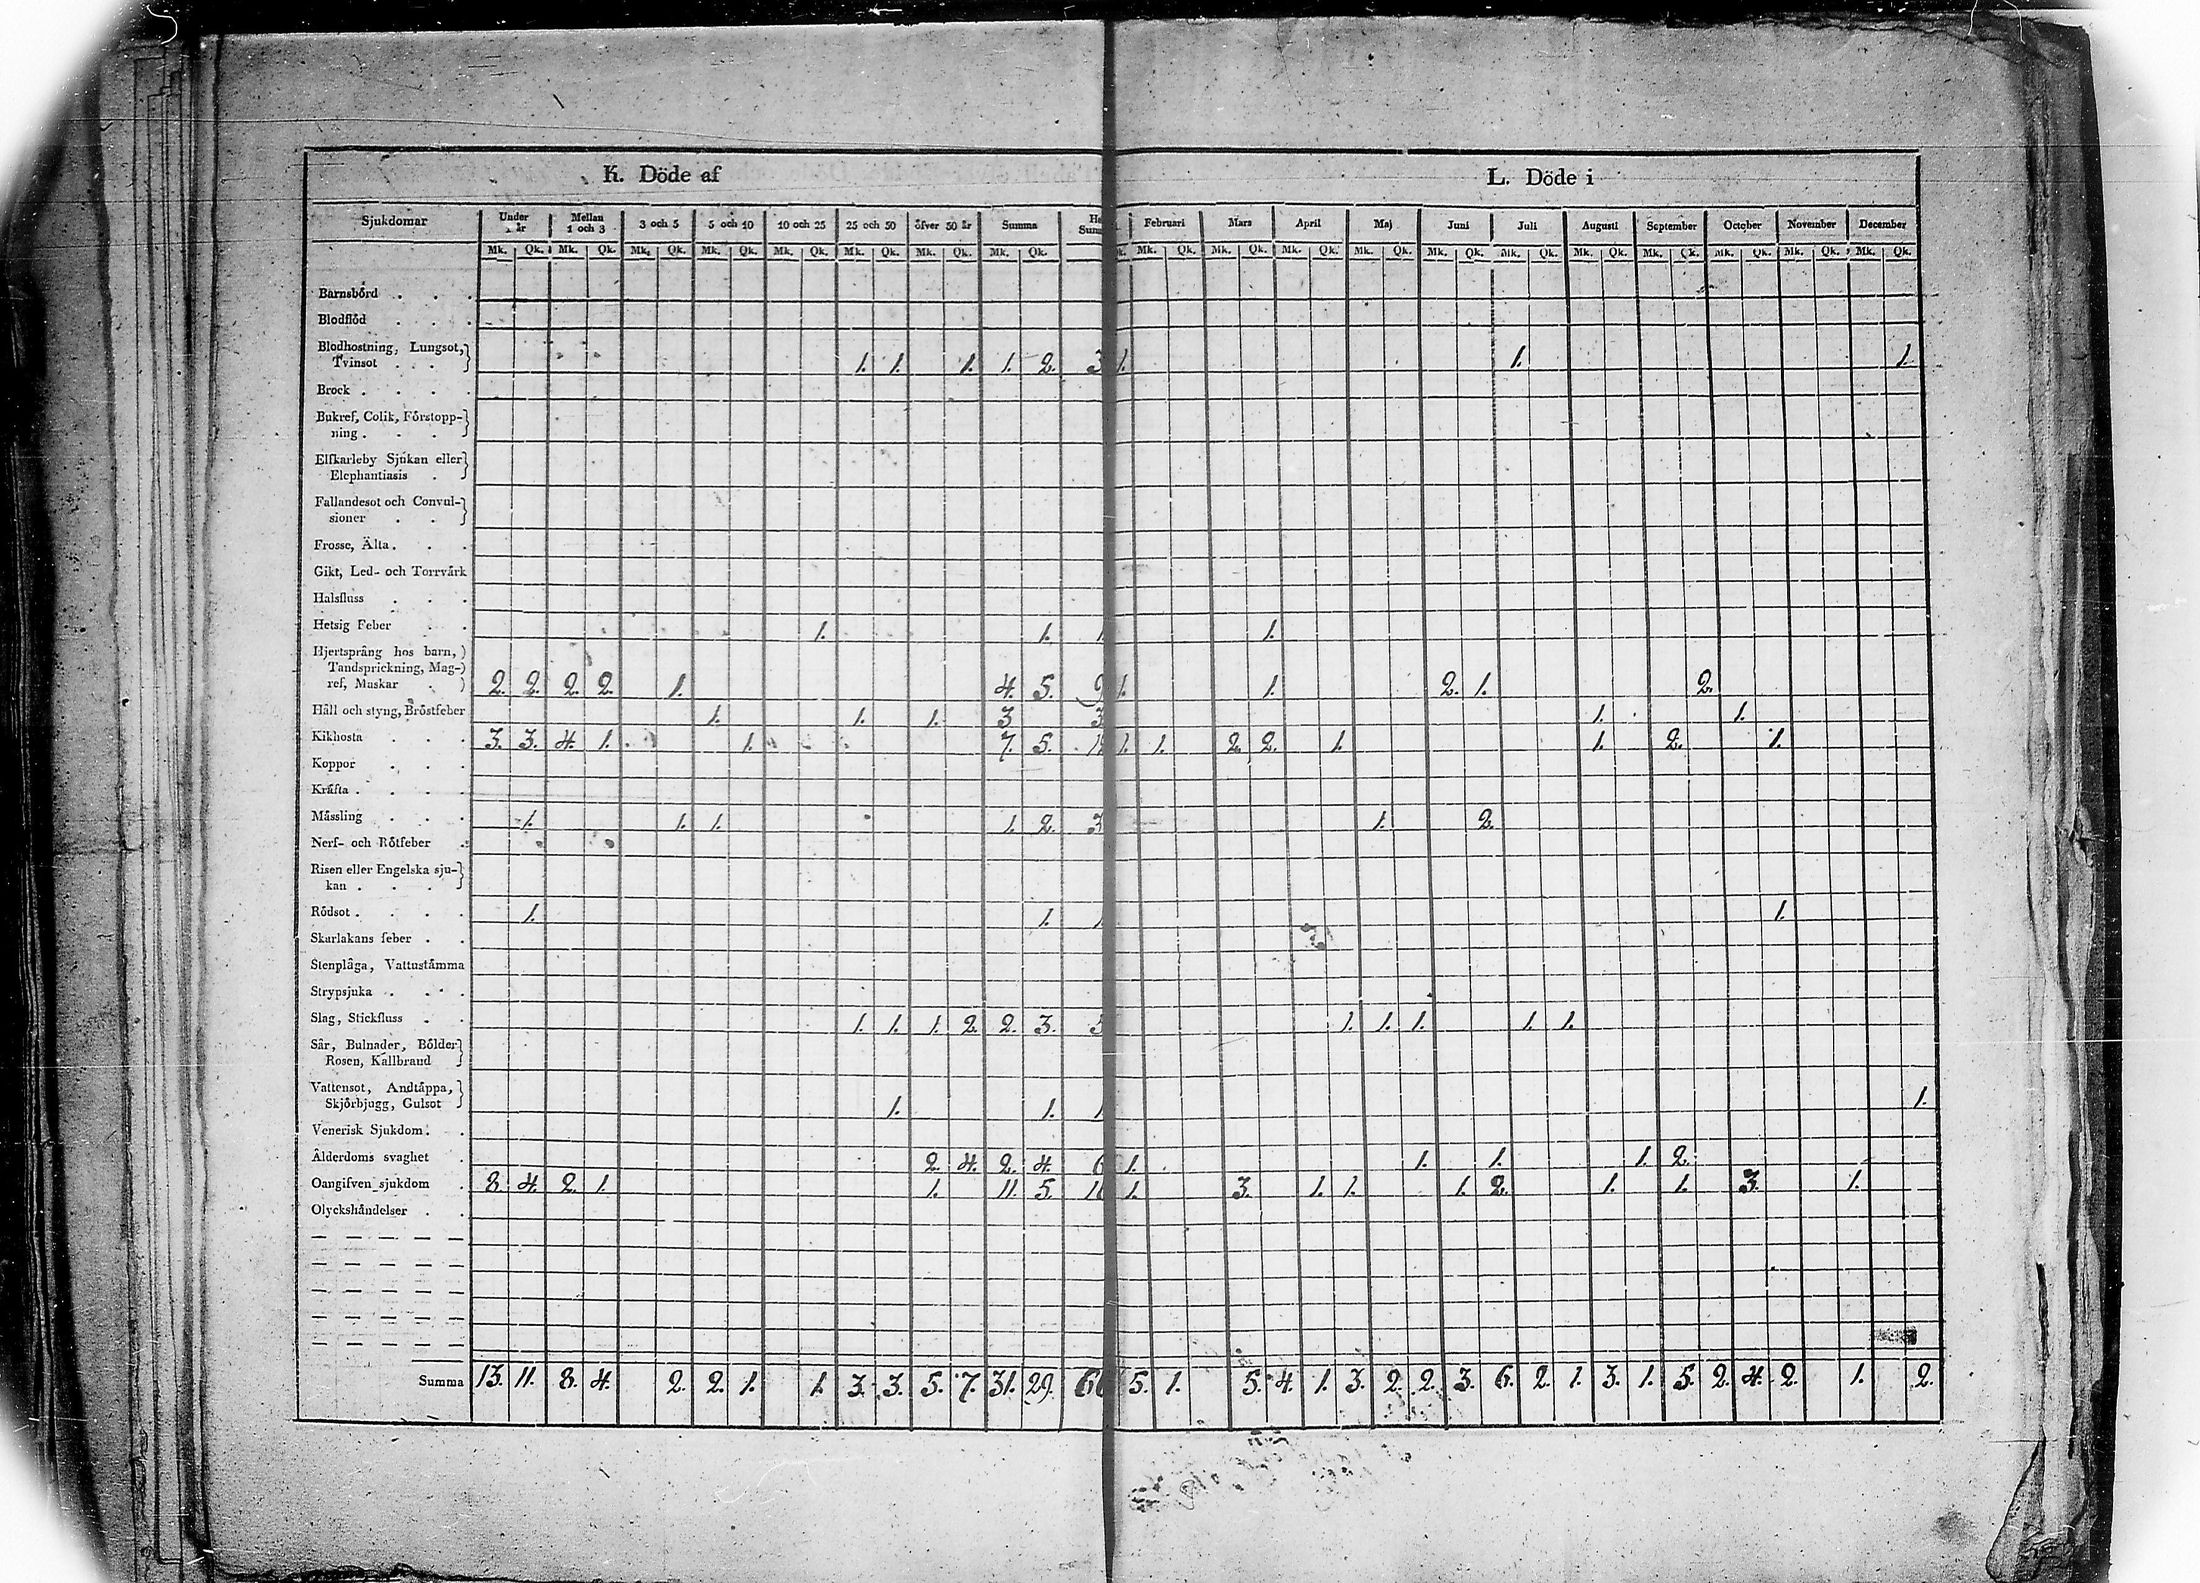 K. Döde af L. Döde i
Sjukdomar Under år Mellan 1 och 3 3 och 5 5 och 10 10 och 25 25 och 50 öfver 50 år Summa Februari Mars April Maj Juni Juli Augusti September October November December
Mk. Qk. Mk. Qk. Mk. Qk. Mk. Qk. Mk. Qk. Mk. Qk. Mk. Qk. Mk. Qk. Mk. Qk. Mk. Qk. Mk. Qk. Mk. Qk. Mk. Qk. Mk. Qk. Mk. Qk. Mk. Qk. Mk. Qk. Mk. Qk. Mk. Qk.
Barnsbörd . . .
Blodflöd . . .
Blodhostning, Lungsot,
Tvinsot . . . 1. 1. 1. 1. 2. 3 1. 1. 1.
Brock . . . .
Bukref, Colik, Förstopp-
ning . . . .
Elfkarleby Sjukan eller
Elephantiasis .
Fallandesot och Convul-
sioner . .
Frosse, Älta . . .
Gikt, Led- och Torrvärk
Halsfluss . . .
Hetsig Feber . . 1. 1. 1 1.
Hjertsprång hos barn,
Tandsprickning, Mag-
ref, Maskar . 2. 2. 2. 2. 1. 4. 5. 9 1. 1. 2. 1. 2.
Håll och styng, Bröstfeber 1. 1. 1. 3 3 1. 1.
Kikhosta . . . 3. 3. 4. 1. 1. 7. 5. 1. 1. 2. 2. 1. 1. 2. 1.
Koppor . . .
Kräfta . . . .
Mässling . . . 1. 1. 1. 1. 2. 3 1. 2.
Nerf- och Rötfeber .
Risen eller Engelska sju-
kan . . . .
Rödsot . . . . 1. 1. 1 1.
Skarlakans feber . .
Stenplåga, Vattustämma
Strypsjuka . . .
Slag, Stickfluss . . 1. 1. 1. 2. 2. 3. 5 1. 1. 1. 1. 1.
Sår, Bulnader, Bölder
Rosen, Kallbrand
Vattensot, Andtäppa,
Skjörbjugg, Gulsot 1. 1. 1 1.
Venerisk Sjukdom . .
Ålderdoms svaghet . 2. 4. 2. 4. 6 1. 1. 1. 1. 2.
Oangifven sjukdom . 8. 4. 2. 1. 1. 11. 5. 1. 3. 1. 1. 1. 2. 1. 1. 3. 1.
Olyckshändelser . .
Summa 13. 11. 8. 4. 2. 2. 1. 1. 3. 3. 5. 7. 31. 29. 60 5. 1. 5. 4. 1. 3. 2. 2. 3. 6. 2. 1. 3. 1. 5. 2. 4. 2. 1. 2.